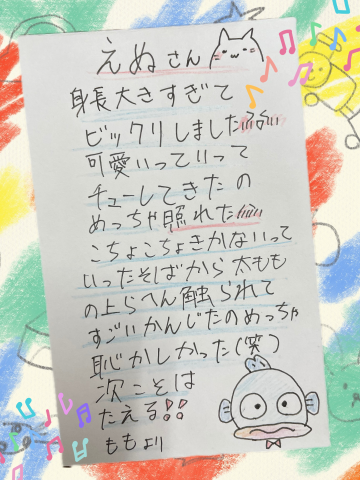 えぬさん
身長大きすぎて
ビックリしました
可愛いっていって
チューしてきたの
めっちゃ照れた
こちょこちょきかないって
いったそばから太もも
の上らへん触られて
すごいかんじたのめっちゃ
恥かしかった(笑)
次こそは
たえる!!
ももより